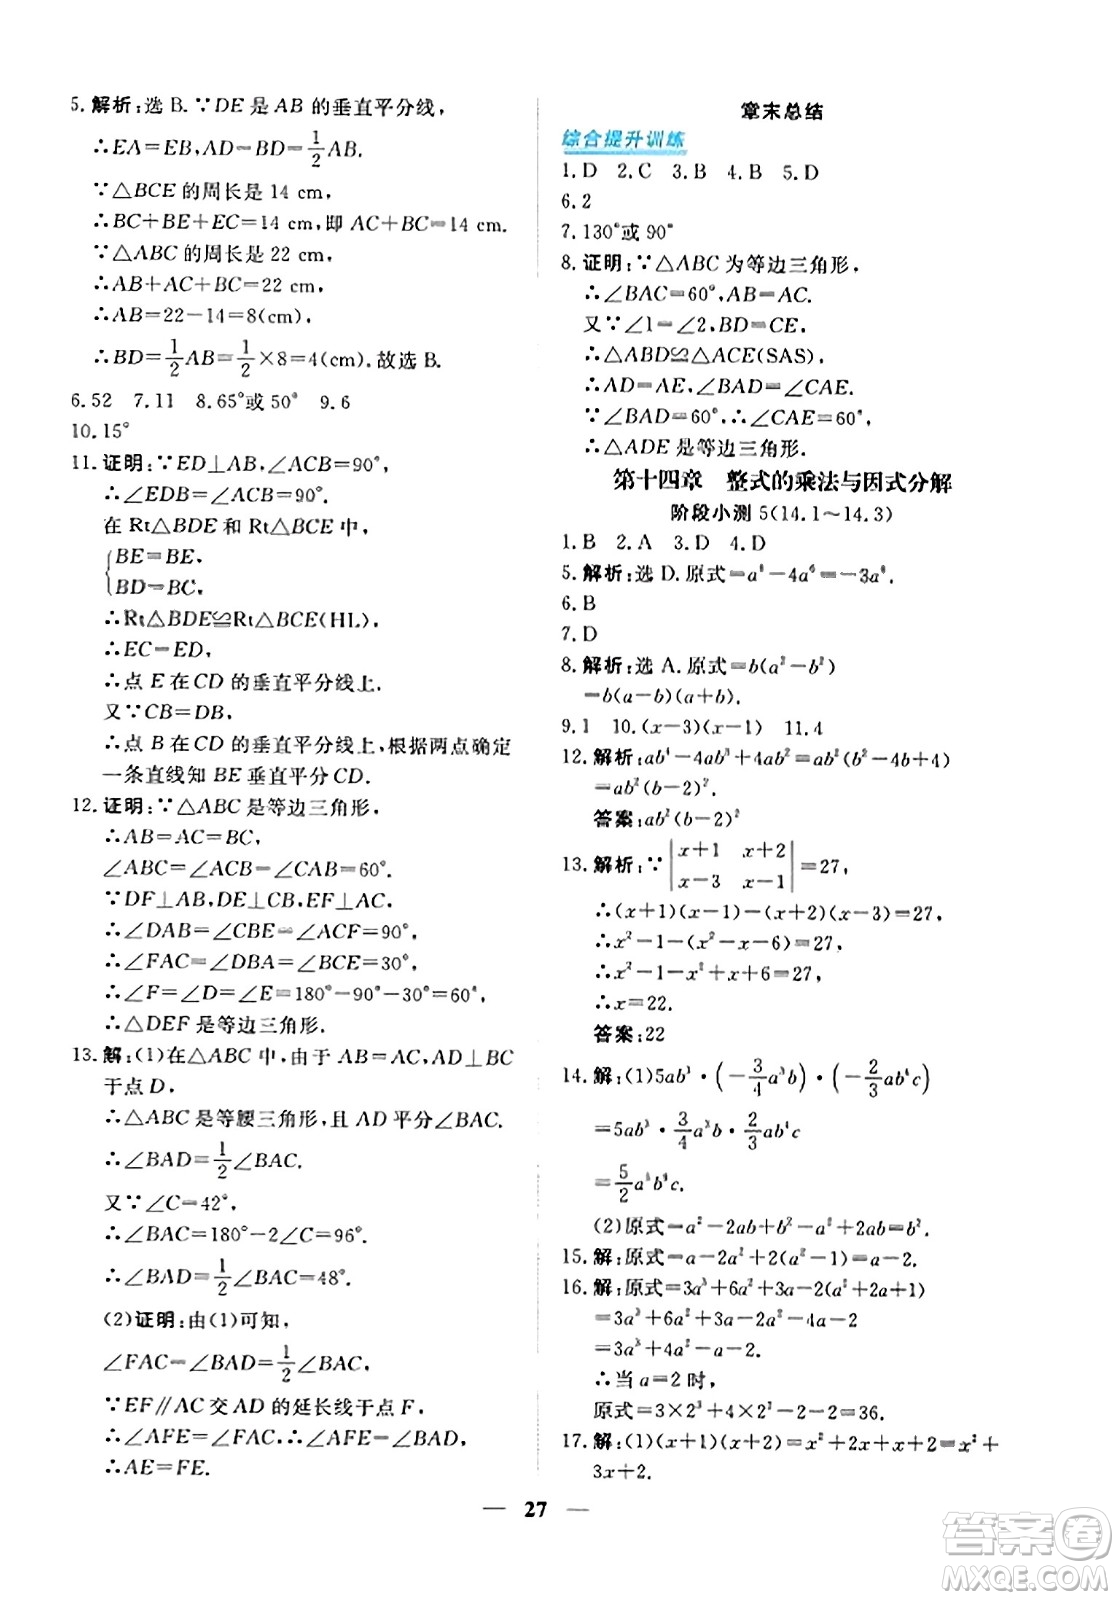 5.解析:选 B.∵DE 是 AB 的垂直平分线,
∴EA=EB,AD=BD=1/2 AB.
∵△BCE 的周长是 14 cm,
∴BC+BE+EC=14 cm,即 AC+BC=14 cm.
∵△ABC 的周长是 22 cm,
∴AB+AC+BC=22 cm,
∴AB=22-14=8(cm),
∴BD=1/2 AB=1/2×8=4(cm).故选 B.
6.52 7.11 8.65°或 50° 9.6
10.15°
11.证明:∵ED⊥AB,∠ACB=90°,
∴∠EDB=∠ACB=90°.
在 Rt△BDE 和 Rt△BCE 中,
{BE=BE,
BD=BC,
∴Rt△BDE≌Rt△BCE(HL),
∴EC=ED,
∴点 E 在 CD 的垂直平分线上.
又∵CB=DB,
∴点 B 在 CD 的垂直平分线上,根据两点确定
一条直线知 BE 垂直平分 CD.
12.证明:∵△ABC 是等边三角形,
∴AB=AC=BC,
∠ABC=∠ACB=∠CAB=60°.
∵DF⊥AB,DE⊥CB,EF⊥AC,
∴∠DAB=∠CBE=∠ACF=90°,
∴∠FAC=∠DBA=∠BCE=30°,
∴∠F=∠D=∠E=180°-90°-30°=60°,
∴△DEF 是等边三角形.
13.解:(1)在△ABC 中,由于 AB=AC,AD⊥BC
于点 D,
∴△ABC 是等腰三角形,且 AD 平分∠BAC.
∴∠BAD=1/2∠BAC.
又∵∠C=42°,
∴∠BAC=180°-2∠C=96°,
∴∠BAD=1/2∠BAC=48°.
(2)证明:由(1)可知,
∠FAC=∠BAD=1/2∠BAC,
∵EF∥AC 交 AD 的延长线于点 F,
∴∠AFE=∠FAC,∴∠AFE=∠BAD,
∴AE=FE.
章末总结
综合提升训练
1.D 2.C 3.B 4.B 5.D
6.2
7.130°或 90°
8.证明:∵△ABC 为等边三角形,
∴∠BAC=60°,AB=AC.
又∵∠1=∠2,BD=CE,
∴△ABD≌△ACE(SAS),
∴AD=AE,∠BAD=∠CAE.
∵∠BAD=60°,∴∠CAE=60°,
∴△ADE 是等边三角形.
第十四章 整式的乘法与因式分解
阶段小测 5(14.1~14.3)
1.B 2.A 3.D 4.D
5.解析:选 D.原式=a⁶-4a⁶=-3a⁶.
6.B
7.D
8.解析:选 A.原式=b(a²-b²)
=b(a-b)(a+b).
9.1 10.(x-3)(x-1) 11.4
12.解析:ab⁴-4ab³+4ab²=ab²(b²-4b+4)
=ab²(b-2)².
答案:ab²(b-2)²
13.解析:∵|x+1 x+2|
|x-3 x-1|=27,
∴(x+1)(x-1)-(x+2)(x-3)=27,
∴x²-1-(x²-x-6)=27,
∴x²-1-x²+x+6=27,
∴x=22.
答案:22
14.解:(1)5ab³·(-3/4 a³b)·(-2/3 ab⁴c)
=5ab³·3/4 a³b·2/3 ab⁴c
=5/2 a⁵b⁸c.
(2)原式=a²-2ab+b²-a²+2ab=b².
15.解:原式=a-2a²+2(a²-1)=a-2.
16.解:原式=3a³+6a²+3a-2(a²+2a+1)
=3a³+6a²+3a-2a²-4a-2
=3a³+4a²-a-2.
∴当 a=2 时,
原式=3×2³+4×2²-2-2=36.
17.解:(1)(x+1)(x+2)=x²+x+2x+2=x²+
3x+2.
— 27 —
答案圈
MXQE.COM